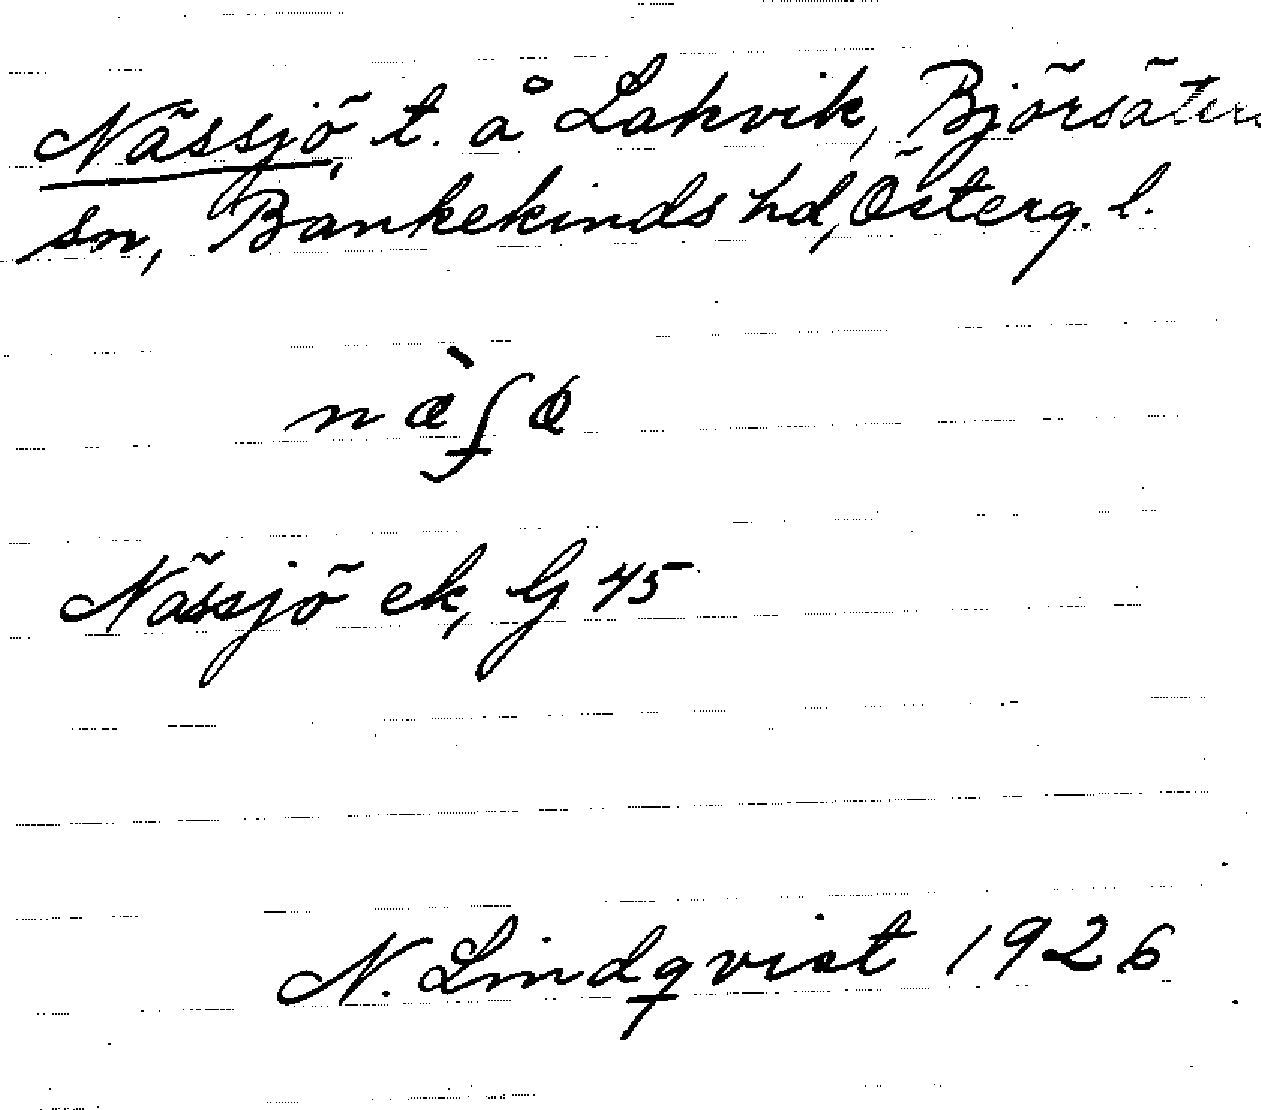 Nässjö, t. å Lakvik, Björsäters
sn, Bankekinds hd, Österg. l.
Nässjö ek, G 45
N. Lindqvist 1926